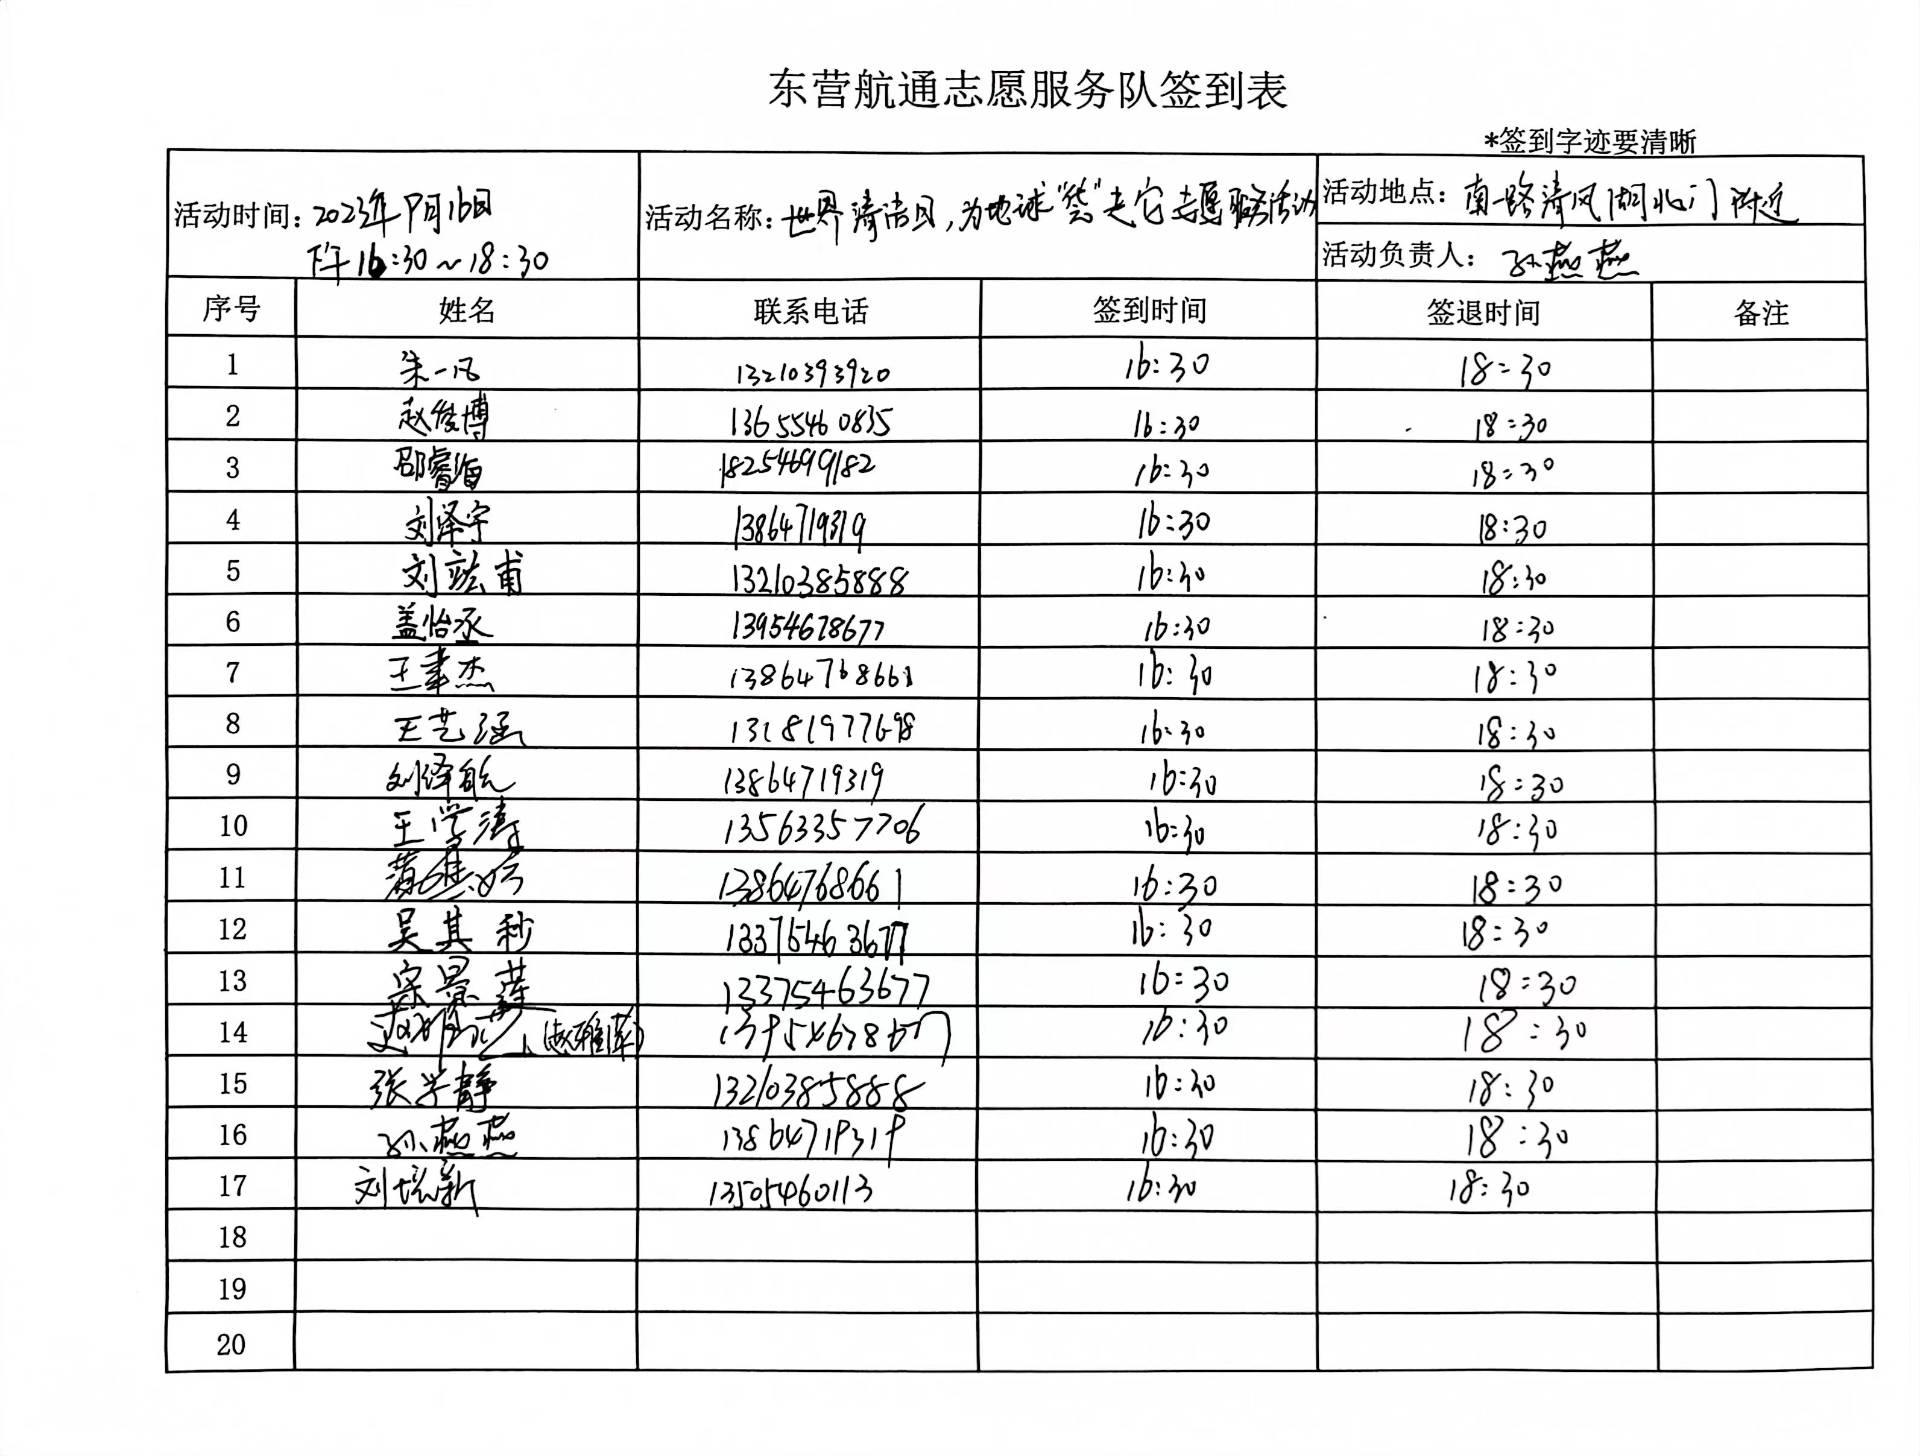 东营航通志愿服务队签到表
*签到字迹要清晰
活动时间: 2023年9月16日
下午16:30~18:30
活动名称: 世界清洁日,为地球"袋"走它志愿服务活动
活动地点: 南一路清风湖北门附近
活动负责人: 孙燕燕
序号 姓名 联系电话 签到时间 签退时间 备注
1 朱一凡 13210393920 16:30 18:30
2 赵俊博 13655460835 16:30 18:30
3 邵睿 18254699182 16:30 18:30
4 刘泽宇 13864719319 16:30 18:30
5 刘竑甫 13210385888 16:30 18:30
6 盖怡丞 13954678677 16:30 18:30
7 王聿杰 13864768661 16:30 18:30
8 王艺涵 13181977698 16:30 18:30
9 刘泽航 13864719319 16:30 18:30
10 王学涛 13563357706 16:30 18:30
11 13864768661 16:30 18:30
12 吴其秒 13375463677 16:30 18:30
13 宗景莲 13375463677 16:30 18:30
14 13954678677 16:30 18:30
15 张学静 13210385888 16:30 18:30
16 孙燕燕 13864719319 16:30 18:30
17 刘培新 13505460113 16:30 18:30
18
19
20